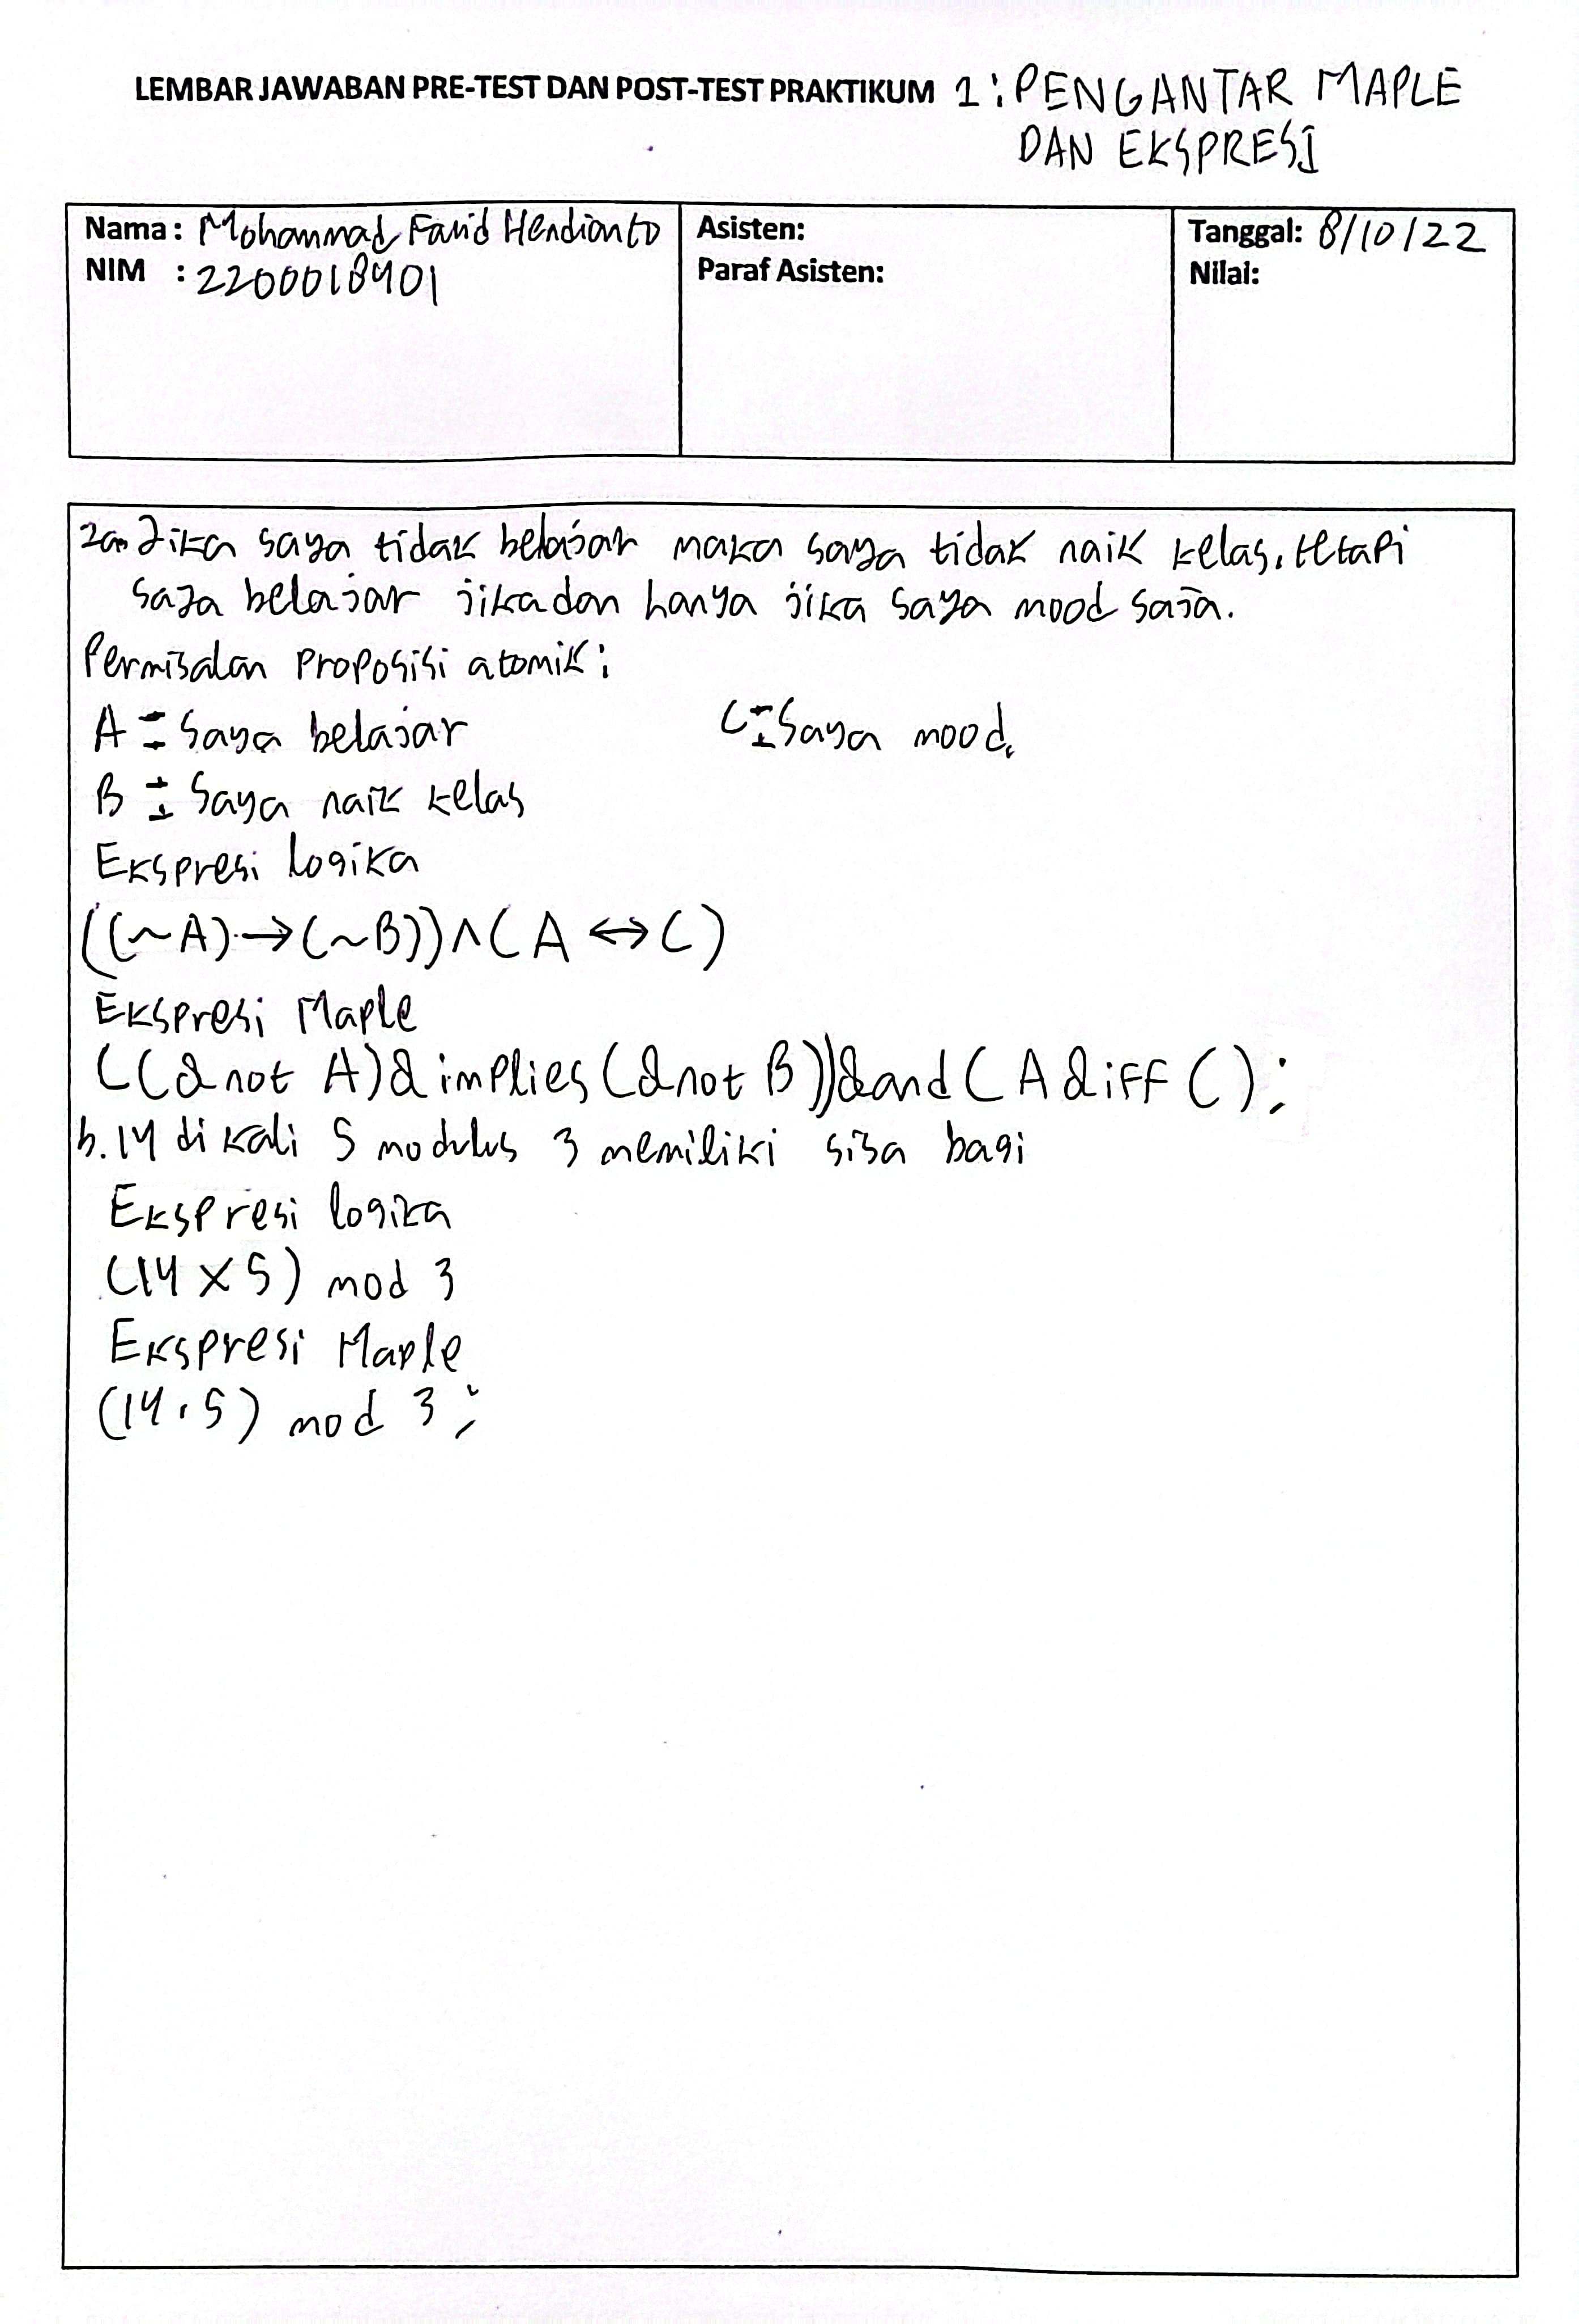 LEMBAR JAWABAN PRE-TEST DAN POST-TEST PRAKTIKUM 1: PENGANTAR MAPLE
DAN EKSPRESI
Nama : Mohammad Farid Hendianto
NIM : 2200018401
Asisten:
Paraf Asisten:
Tanggal: 8/10/22
Nilai:
2a. Jika saya tidak belajar maka saya tidak naik kelas, tetapi
saya belajar jika dan hanya jika saya mood saja.
Permisalan Proposisi atomik:
A = Saya belajar C = Saya mood.
B = Saya naik kelas
Ekspresi logika
((~A)→(~B))∧(A ↔ C)
Ekspresi Maple
((&not A)&implies(&not B))&and(A &iff C);
b. 14 di kali 5 modulus 3 memiliki sisa bagi
Ekspresi logika
(14 × 5) mod 3
Ekspresi Maple
(14 . 5) mod 3 ;